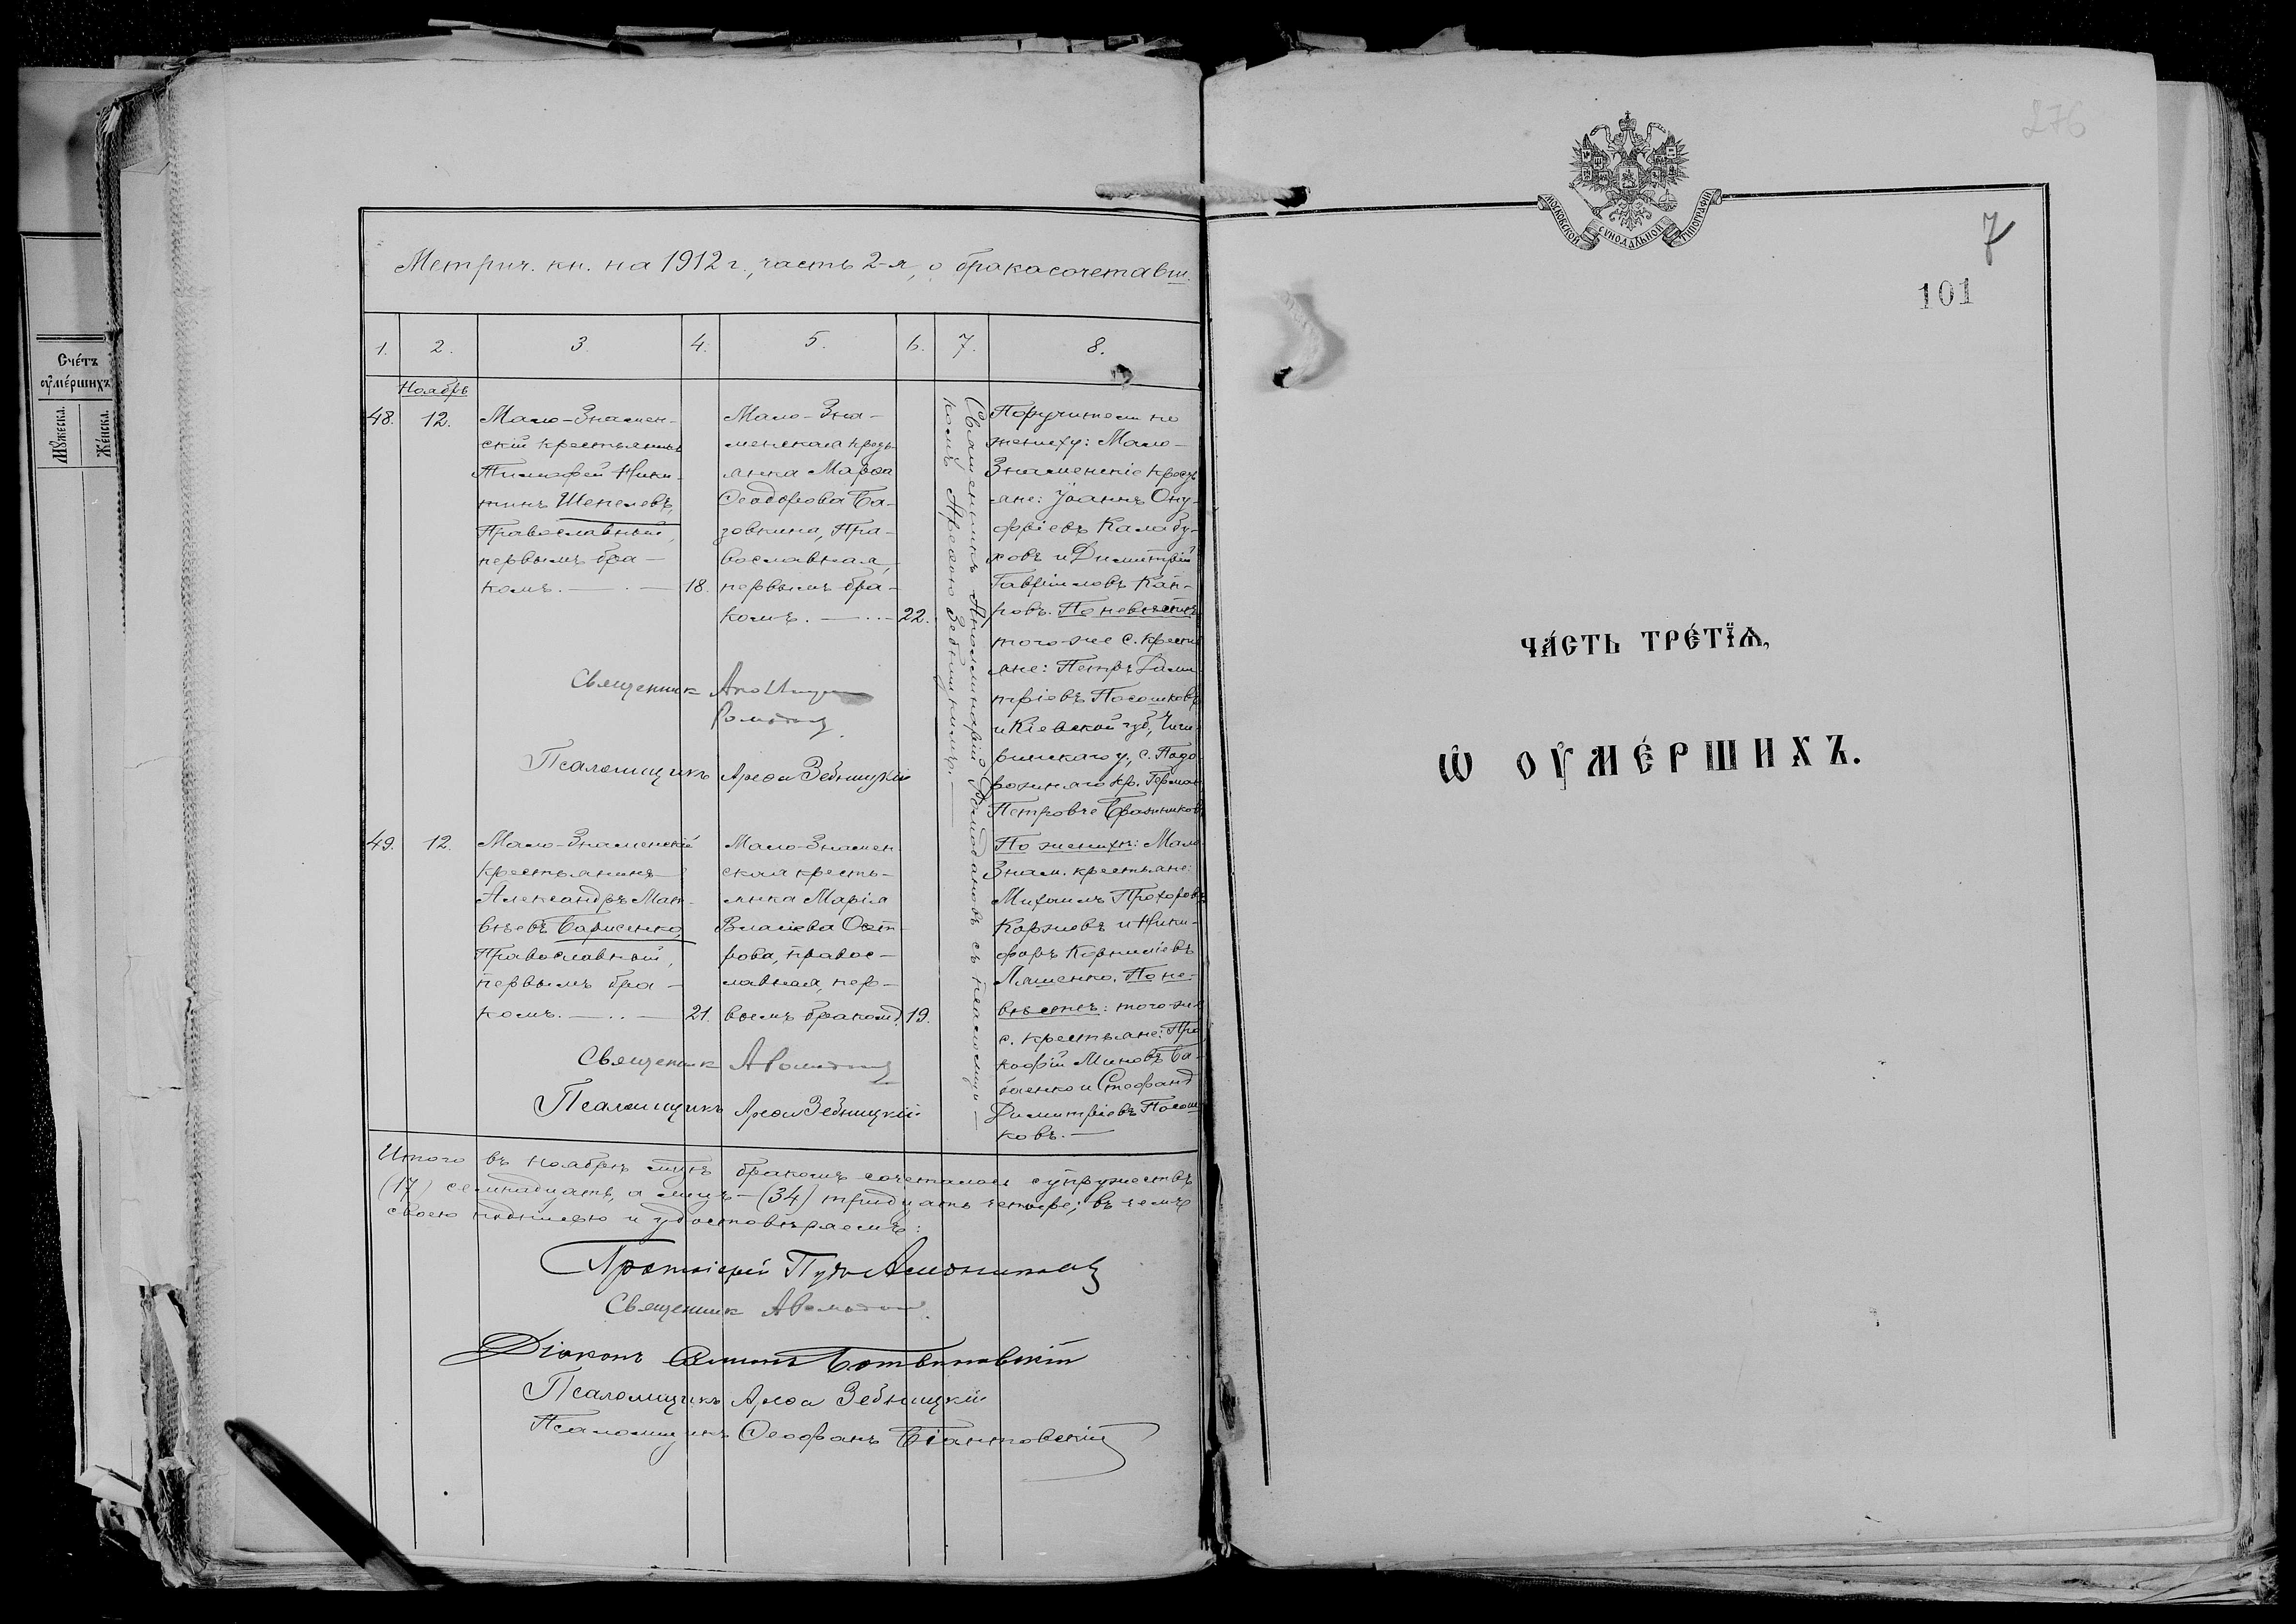 Счéтъ
ᲂу҆мéршихъ
Мꙋ́жеска.
Же́нска.
Метрич. кн. на 1912 г., часть 2-я, о бракосочетавш.
1. 2. 3. 4. 5. 6. 7. 8.
Ноябрь
48. 12.
Мало-Знамен-
скій крестьянинъ
Тимофей Ники-
тинъ Шепелевъ,
Православный,
первымъ бра-
комъ. 18.
Мало-Зна-
менская кресть-
янка Марѳа
Ѳеодорова Ба-
зовкина, Пра-
вославная,
первымъ бра-
комъ. 22.
Священникъ Аполлинарій Ромодановъ съ псаломщи-
комъ Арѳою Зебницкимъ.
Поручители по
жениху: Мало-
Знаменскіе кресть
яне: Іоаннъ Ону-
фріевъ Калабу-
ховъ и Димитрій
Гавріиловъ
ровъ. По невѣстѣ
того-же с. кресть
яне: Петръ Дими
тріевъ Посошковъ
и Кіевской губ., Чиги
ринскаго у., с. Подо
рожняго кр. Герман
Петровъ Бражников
Священникъ
Псаломщикъ Арѳа Зебницкій
49. 12.
Мало-Знаменскій
крестьянинъ
Александръ Мат-
вѣевъ Барысенко,
Православный,
первымъ бра-
комъ. 21.
Мало-Знамен
ская кресть-
янка Марія
Власіева Остр-
рова, правос-
лавная, пер-
вымъ бракомъ. 19.
По женихѣ: Мало
Знам. крестьяне:
Михаилъ Прохоровъ
Коржевъ и Ники-
форъ Корниліевъ
Ляшенко. По не-
вѣстѣ: того-же
с. крестьяне: Про
кофій Миновъ Ба-
бченко и Стефанъ
Димитріевъ Посош
ковъ.
Священникъ А Ромодановъ
Псаломщикъ Арѳа Зебницкій
Итого въ ноябрѣ мцѣ бракомъ сочеталось супружествъ
(17) семнадцать, а лицъ - (34) тридцать четыре; въ чемъ
своею подписью и удостовѣряемъ:
Протоіерей
Священникъ А Ромодановъ
Діаконъ Ботвиновскій
Псаломщикъ Арѳа Зебницкій
Псаломщикъ Ѳеофанъ Біантовскій
276
МОСКОВСКОЙ СѴНОДАЛЬНОЙ ТИПОГРАФІИ
7
101
ЧА́СТЬ ТРЕ́ТЇѦ,
Ѡ҆ ОУ҆МЕ́РШИХЪ.